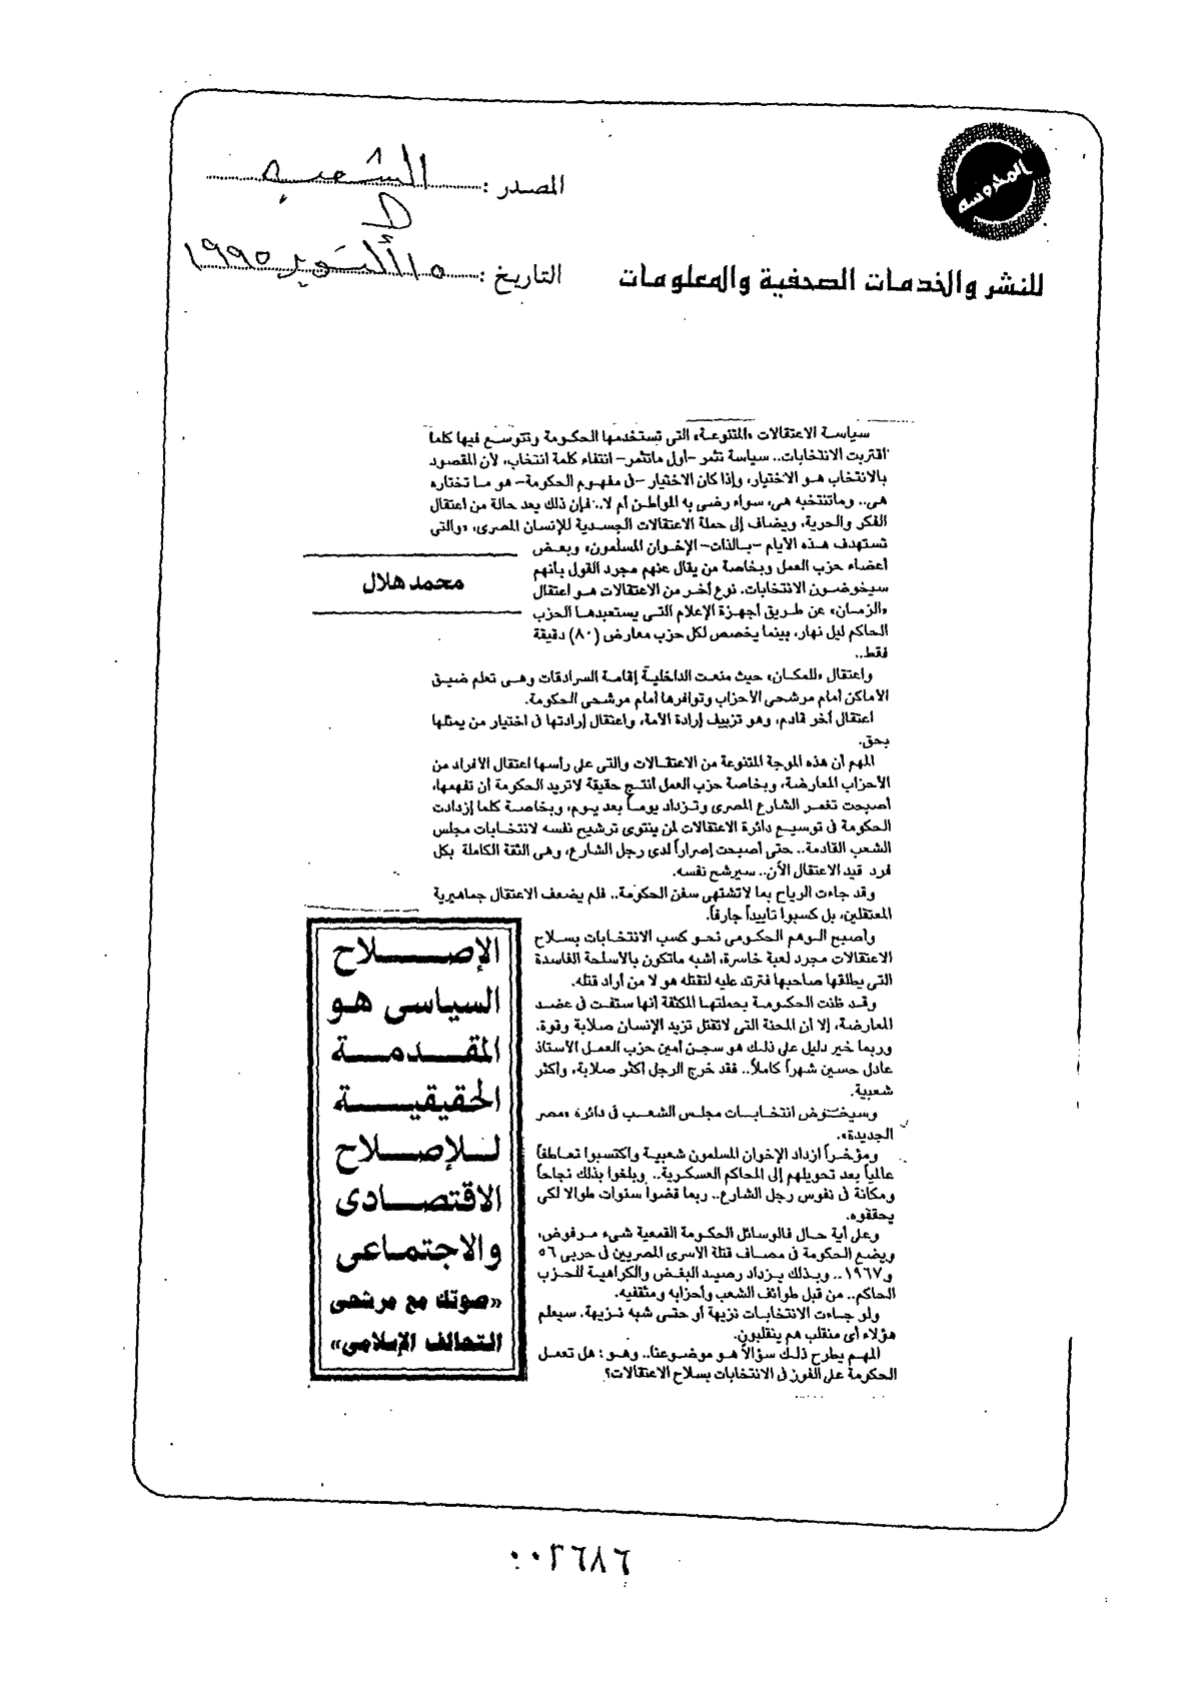 المدوسة
للنشر والخدمات الصحفية والمعلومات
المصدر : الشعب
التاريخ : ١٥ أكتوبر ١٩٩٥
سياسة الاعتقالات «المتنوعة» التى تستخدمها الحكومة وتتوسع فيها كلما
اقتربت الانتخابات.. سياسة تثمر -أول ماتثمر- انتفاء كلمة انتخاب، لأن المقصود
بالانتخاب هو الاختيار، وإذا كان الاختيار -فى مفهوم الحكومة- هو ما تختاره
هى.. وماتنتخبه هى، سواء رضى به المواطن أم لا.. فإن ذلك يعد حالة من اعتقال
الفكر والحرية، ويضاف إلى حملة الاعتقالات الجسدية للإنسان المصرى، «والتى
تستهدف هذه الأيام -بالذات- الإخوان المسلمون» وبعض
أعضاء حزب العمل وبخاصة من يقال عنهم مجرد القول بأنهم
سيخوضون الانتخابات. نوع أخر من الاعتقالات هو اعتقال
«الزمان» عن طريق أجهزة الإعلام التى يستعبدها الحزب
الحاكم ليل نهار، بينما يخصص لكل حزب معارض (٨٠) دقيقة
فقط..
محمد هلال
واعتقال «للمكان» حيث منعت الداخلية إقامة السرادقات وهى تعلم ضيق
الأماكن أمام مرشحى الأحزاب وتوافرها أمام مرشحى الحكومة.
اعتقال أخر قادم، وهو تزييف إرادة الأمة، واعتقال إرادتها فى اختيار من يمثلها
بحق.
المهم أن هذه الموجة المتنوعة من الاعتقالات والتى على رأسها اعتقال الأفراد من
الأحزاب المعارضة، وبخاصة حزب العمل أنتج حقيقة لاتريد الحكومة أن تفهمها،
أصبحت تغمر الشارع المصرى وتزداد يوماً بعد يوم، وبخاصة كلما إزدادت
الحكومة فى توسيع دائرة الاعتقالات لمن ينتوى ترشيح نفسه لانتخابات مجلس
الشعب القادمة.. حتى أصبحت إصراراً لدى رجل الشارع، وهى الثقة الكاملة بكل
فرد قيد الاعتقال الأن.. سيرشح نفسه.
وقد جاءت الرياح بما لاتشتهى سفن الحكومة.. فلم يضعف الاعتقال جماهيرية
المعتقلين، بل كسبوا تأييداً جارفاً.
وأصبح الوهم الحكومى نحو كسب الانتخابات بسلاح
الاعتقالات مجرد لعبة خاسرة، أشبه ماتكون بالأسلحة الفاسدة
التى يطلقها صاحبها فترتد عليه لتقتله هو لا من أراد قتله.
وقد ظنت الحكومة بحملتها المكثفة أنها ستفت فى عضد
المعارضة، إلا أن المحنة التى لاتقتل تزيد الإنسان صلابة وقوة.
وربما خير دليل على ذلك هو سجن أمين حزب العمل الأستاذ
عادل حسين شهراً كاملاً.. فقد خرج الرجل أكثر صلابة، وأكثر
شعبية.
وسيخوض انتخابات مجلس الشعب فى دائرة «مصر
الجديدة».
ومؤخراً ازداد الإخوان المسلمون شعبية واكتسبوا تعاطفاً
عالمياً بعد تحويلهم إلى المحاكم العسكرية.. وبلغوا بذلك نجاحاً
ومكانة فى نفوس رجل الشارع.. ربما قضوا سنوات طوالا لكى
يحققوه.
وعلى أية حال فالوسائل الحكومة القمعية شىء مرفوض،
ويضع الحكومة فى مصاف قتلة الأسرى المصريين فى حربى ٥٦
و١٩٦٧.. وبذلك يزداد رصيد البغض والكراهية للحزب
الحاكم.. من قبل طوائف الشعب وأحزابه ومثقفيه.
ولو جاءت الانتخابات نزيهة أو حتى شبه نزيهة. سيعلم
هؤلاء أى منقلب هم ينقلبون.
المهم يطرح ذلك سؤالاً هو موضوعنا.. وهو : هل تعمل
الحكومة على الفوز فى الانتخابات بسلاح الاعتقالات؟
الإصلاح
السياسى هو
المقدمة
الحقيقية
للإصلاح
الاقتصادى
والاجتماعى
«صوتك مع مرشحى
التحالف الإسلامى»
٠٠٢٦٨٦